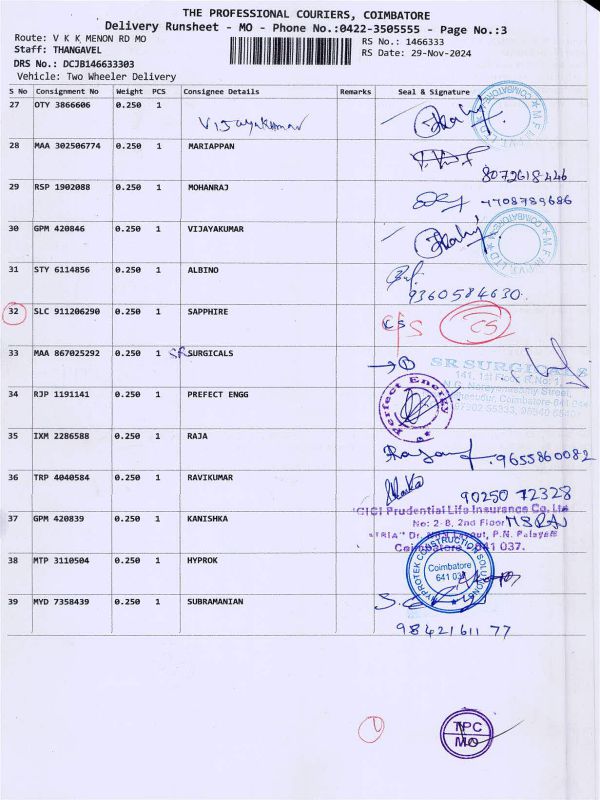 THE PROFESSIONAL COURIERS, COIMBATORE
Delivery Runsheet - MO - Phone No.:0422-3505555 - Page No.:3
Route: V K K MENON RD MO
RS No.: 1466333
Staff: THANGAVEL
RS Date: 29-Nov-2024
DRS No.: DCJB146633303
Vehicle: Two Wheeler Delivery
S No Consignment No Weight PCS Consignee Details Remarks Seal & Signature
27 OTY 3866606 0.250 1
Vijayakumar
28 MAA 302506774 0.250 1 MARIAPPAN
8072618446
29 RSP 1902088 0.250 1 MOHANRAJ
7708789686
30 GPM 420846 0.250 1 VIJAYAKUMAR
31 STY 6114856 0.250 1 ALBINO
9360584630
32 SLC 911206290 0.250 1 SAPPHIRE
CS CS
33 MAA 867025292 0.250 1 SR SURGICALS
SR SURGICALS
34 RJP 1191141 0.250 1 PREFECT ENGG
Perfect Energy
35 IXM 2286588 0.250 1 RAJA
9655860082
36 TRP 4040584 0.250 1 RAVIKUMAR
90250 72328
37 GPM 420839 0.250 1 KANISHKA
ICICI Prudential Life Insurance Co. Ltd
No: 2-8, 2nd Floor
Coimbatore 641 037.
38 MTP 3110504 0.250 1 HYPROK
HYPROTEK CONSTRUCTION SOLUTIONS
Coimbatore
641 037
39 MYD 7358439 0.250 1 SUBRAMANIAN
98421611 77
TPC
MO